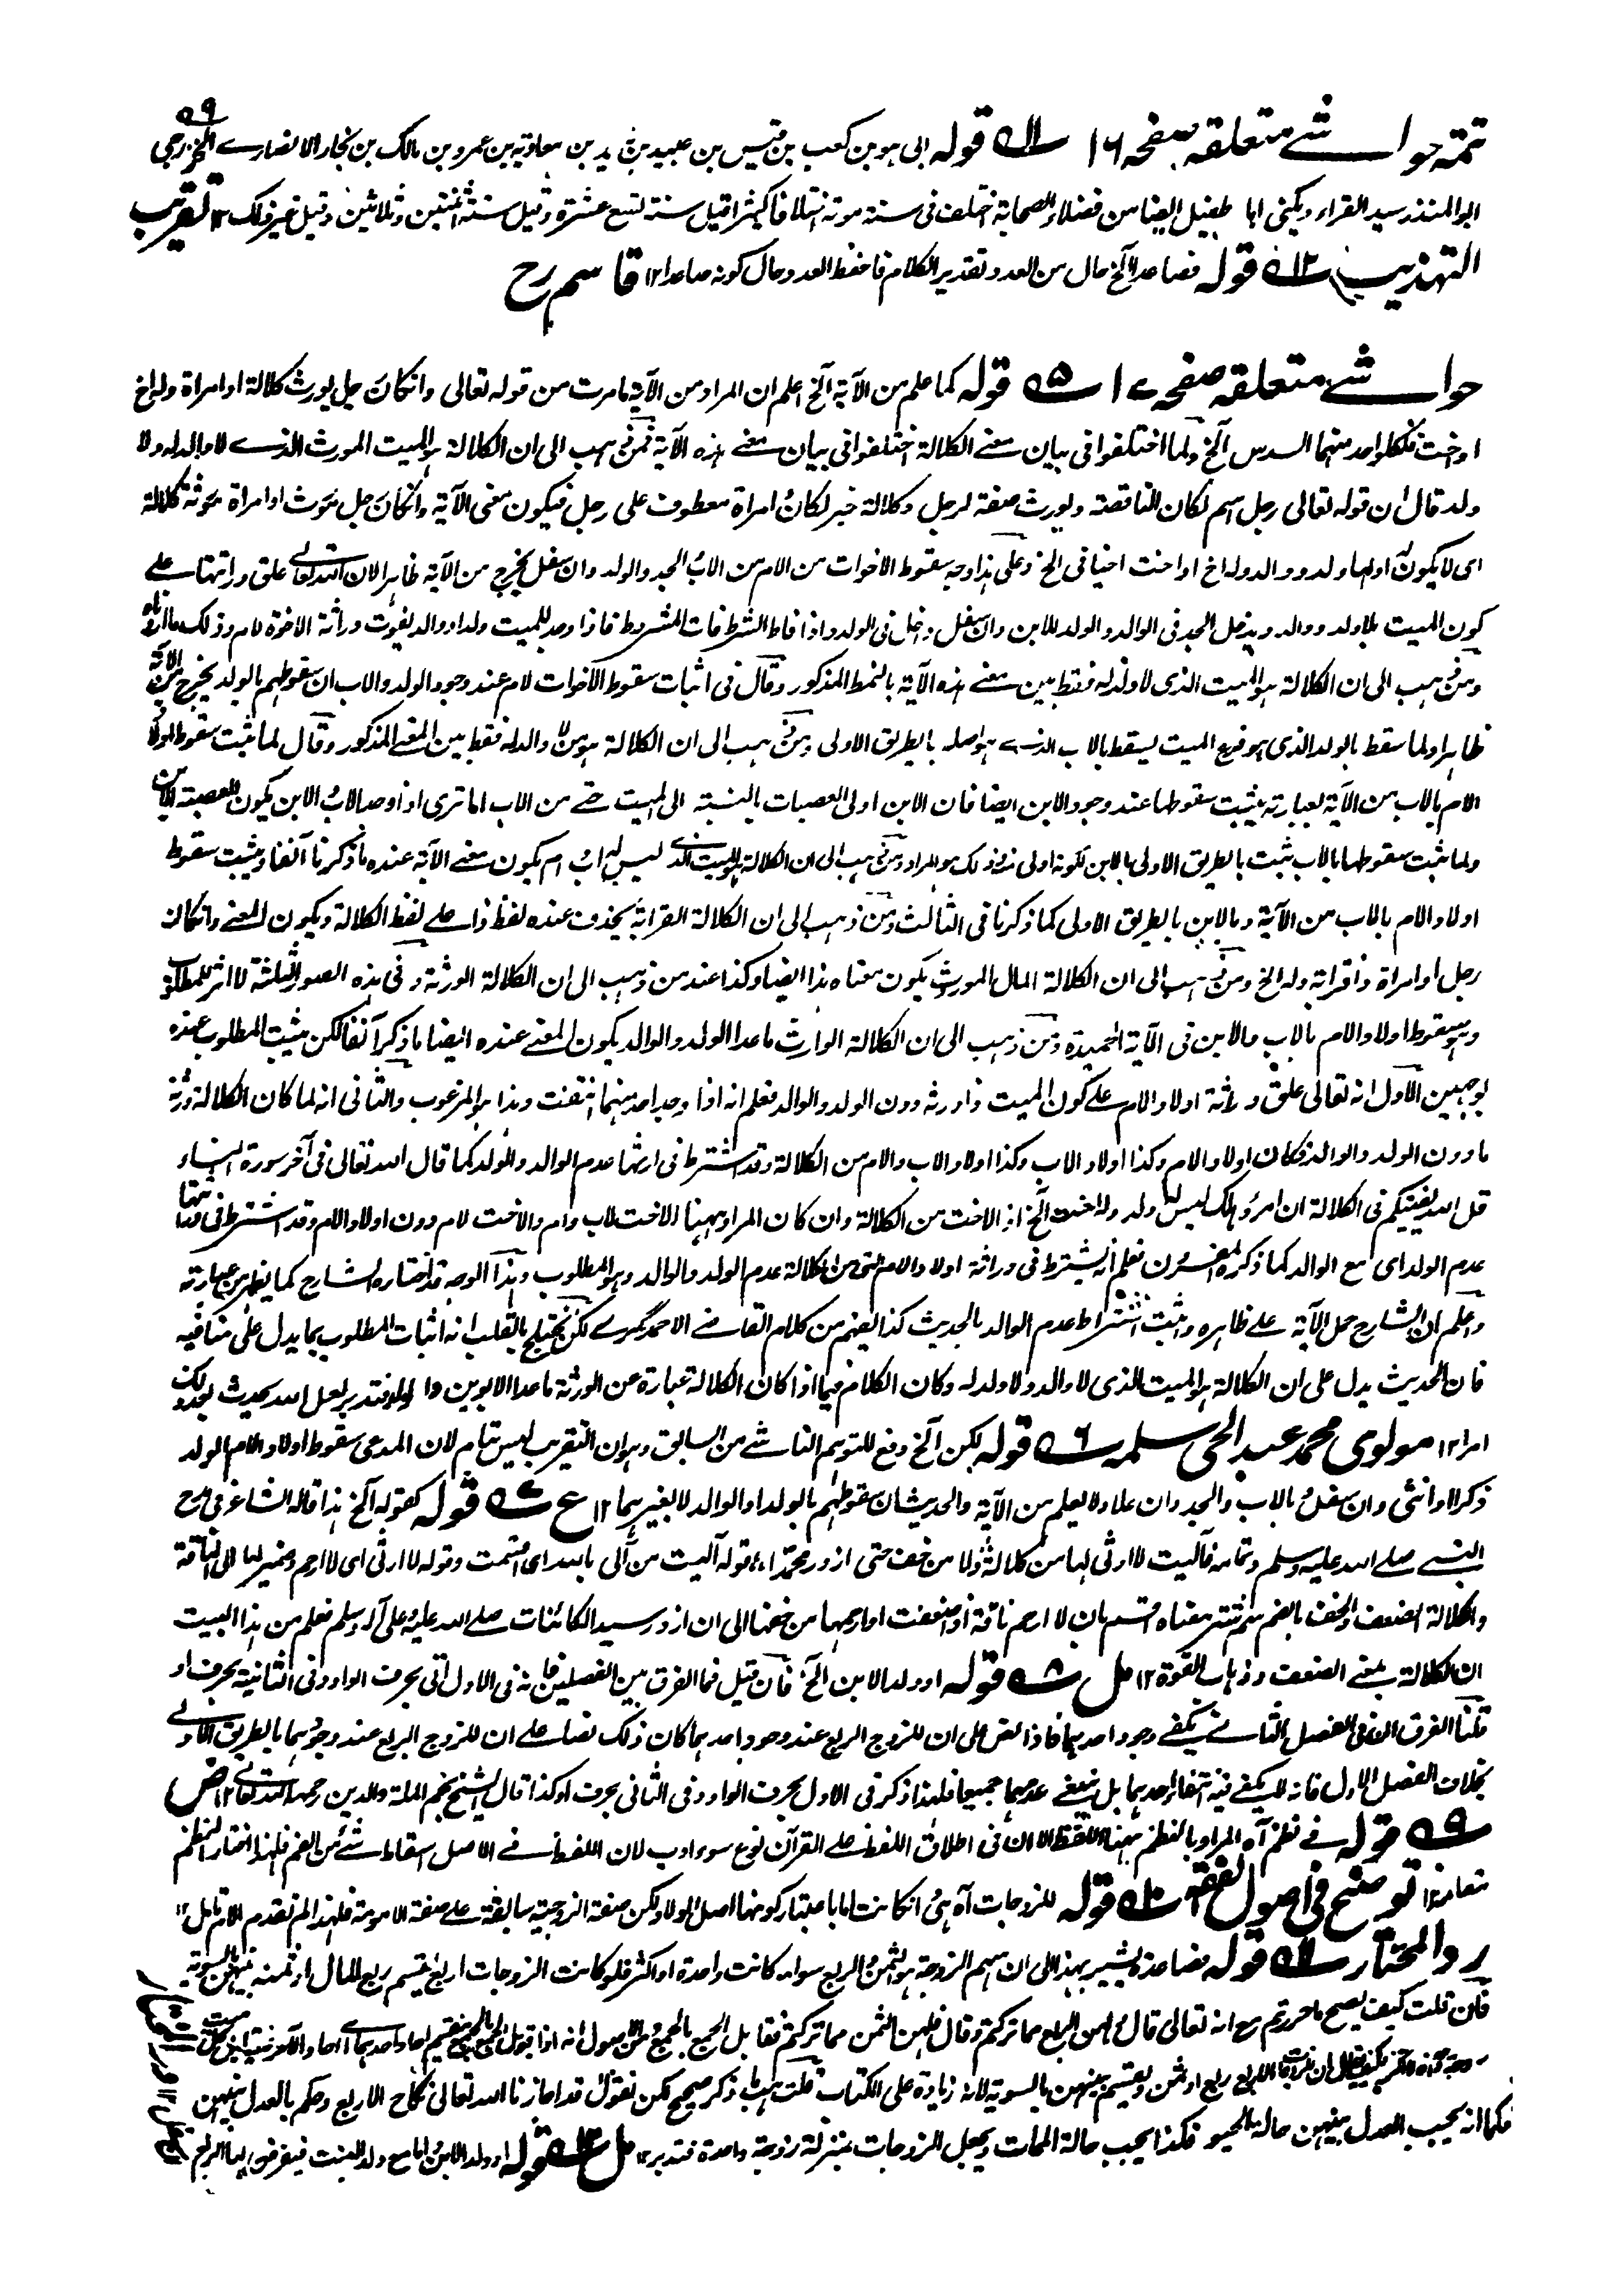 ۵۹
تتمه حواشے متعلقه صفحه ۱۶ ۱۱ قوله ابی هو بن کعب بن قیس بن عبید بن زید بن معاویة بن عمرو بن مالک بن نجار الانصارے الخزرجی
ابو المنذر سید القراء ویکنی ابا طفیل ایضا من فضلاء الصحابة اختلف فی سنة موته اختلافا کثیرا قیل سنة تسع عشرة وقیل سنة اثنتین وثلاثین وقیل غیر ذلک ۱۲ تقریب
التهذیب ۱۲ قوله فصاعدا الخ حال من العدد وتقدیر الکلام فاحفظ العدد حال کونه صاعدا ۱۲ قاسم رح
حواشے متعلقه صفحه ۱۷ ۵ قوله کما علم من الآیة الخ اعلم ان المراد من الآیة ما مرت من قوله تعالی وان کان رجل یورث کلالة او امراة وله اخ
او اخت فلکل واحد منهما السدس الخ ولما اختلفوا فی بیان معنے الکلالة اختلفوا فی بیان معنے هذه الآیة فمن ذهب الی ان الکلالة هو المیت المورث الذے لا والد له ولا
ولد قال ان قوله تعالی رجل اسم لکان الناقصة ویورث صفة لرجل وکلالة خبر لکان وامراة معطوف علی رجل فیکون معنی الآیة وان کان رجل مورث او امراة مورثة کلالة
ای لا یکون لهما ولد ووالد وله اخ او اخت اخیافی الخ وعلی هذا وجه سقوط الاخوات من الام من الاب والجد والولد وان سفل یخرج من الآیة ظاهرا لان الله تعالے علق وراثتها علے
کون المیت بلا ولد ووالد ویدخل الجد فی الوالد والولد للابن وان سفل داخل فی الولد واذا فات الشرط فات المشروط فاذا وجد للمیت ولد او والد یفوت وراثة الاخوة لام وذلک ما اردناه
ومن ذهب الی ان الکلالة هو المیت الذی لا ولد له فقط بین معنے هذه الآیة بالنمط المذکور وقال فی اثبات سقوط الاخوات لام عند وجود الولد والاب ان سقوطهم بالولد یخرج من الآیة
ظاهرا ولما سقط بالولد الذی هو فرع المیت یسقط بالاب الذے هو اصله بالطریق الاولی ومن ذهب الی ان الکلالة هو من لا والد له فقط بین المعنے المذکور وقال لما ثبت سقوط اولاد
الام بالاب من الآیة بعبارته یثبت سقوطها عند وجود الابن ایضا فان الابن اولی العصبات بالنسبة الی المیت حتے من الاب اما تری اذا وجد الاب والابن یکون العصبة الابن
ولما ثبت سقوطها بالاب ثبت بالطریق الاولی بالابن لکونه اولی منه وذلک هو المراد ومن ذهب الی ان الکلالة هو المیت الذے لیس له اب وام یکون معنے الآیة عنده ما ذکرنا آنفا ویثبت سقوط
اولاد الام بالاب من الآیة وبالابن بالطریق الاولی کما ذکرنا فی الثالث ومن ذهب الی ان الکلالة القرابة یحذف عنده لفظ ذا علے لفظ الکلالة ویکون المعنے وان کان
رجل او امراة ذا قرابة وله الخ ومن ذهب الی ان الکلالة المال الموروث یکون معناه هذا ایضا وکذا عند من ذهب الی ان الکلالة الورثة وفی هذه الصور الثلثة لا اثر للمطلوب
وهو سقوط اولاد الام بالاب والابن فی الآیة الحمیدة ومن ذهب الی ان الکلالة الوارث ما عدا الولد والوالد یکون المعنے عنده ایضا ما ذکر آنفا لکن یثبت المطلوب عنده
بوجهین الاول انه تعالی علق وراثة اولاد الام علے کون المیت ذا ورثة دون الولد والوالد فعلم انه اذا وجد احد منهما انتفت وهذا هو المرغوب والثانی انه لما کان الکلالة ورثة
ما دون الولد والوالد فکان اولاد الام وکذا اولاد الاب وکذا اولاد الاب والام من الکلالة وقد اشترط فی ارثها عدم الوالد والولد کما قال الله تعالی فی آخر سورة النساء
قل الله یفتیکم فی الکلالة ان امرؤ هلک لیس له ولد وله اخت الخ اذ الاخت من الکلالة وان کان المراد ههنا الاخت لاب وام والاخت لاب دون اولاد الام وقد اشترط فی وراثتها
عدم الولد ای مع الوالد کما ذکره المفسرون فعلم انه یشترط فی وراثة اولاد الام التی من الکلالة عدم الولد والوالد وهو المطلوب وهذا الوجه قد اختاره الشارح کما یظهر من عبارته
واعلم ان الشارح حمل الآیة علے ظاهره واثبت اشتراط عدم الوالد بالحدیث کذا یفهم من کلام القاضے الاحمدنگرے لکن یختلج بالقلب انه اثبات المطلوب بما یدل علی منافیه
فان الحدیث یدل علی ان الکلالة هو المیت الذی لا والد ولا ولد له وکان الکلام فیما اذا کان الکلالة عبارة عن الورثة ما عدا الابوین والولد فتدبر لعل الله یحدث بعد ذلک
امرا ۱۲ مولوی محمد عبد الحی سلمه ۶ قوله لکن الخ دفع للتوهم الناشے من السابق وهو ان التقریب لیس بتام لان المدعی سقوط اولاد الام بالولد
ذکرا او انثی وان سفل وبالاب والجد وان علا ولا یعلم من الآیة والحدیث ان سقوطهم بالولد او الوالد لا بغیرهما ۱۲ ع ۷ قوله کقوله الخ هذا قاله الشاعر فی مدح
النبے صلے الله علیه وسلم وتمامه فآلیت لا ارثی لها من کلالة ولا من حفی حتی ازور محمدا، قوله آلیت من آلی بالله ای اقسمت وقوله لا ارثی ای لا ارحم وضمیر لها الی الناقة
والکلالة الضعف والحف بالضم معناه اقسم بان لا ارحم ناقة اذا ضعفت او ارحمها من حفها الی ان ازور سید الکائنات صلے الله علیه وعلی آله وسلم فعلم من هذا البیت
ان الکلالة بمعنے الضعف وذهاب القوة ۱۲ مل ۸ قوله او ولد الابن الخ فان قیل فما الفرق بین الفصلین فانه فی الاول اتی بحرف الواو وفی الثانیة بحرف او
قلنا الفرق ان فی الفصل الثانے یکفے وجود احدهما فاذا نص علی ان للزوج الربع عند وجود احدهما کان ذلک نصا علے ان للزوج الربع عند وجودهما بالطریق الاولے
بخلاف الفصل الاول فانه لا یکفے فیه انتفاء احدهما بل ینبغے عدمهما جمیعا فلهذا ذکر فی الاول بحرف الواو وفی الثانی بحرف او کذا قال الشیخ نجم الملة والدین رحمه الله تعالے ۱۲ ض
۹ قوله فے نظم آه المراد بالنظم ههنا اللفظ الا ان فی اطلاق اللفظ علے القرآن نوع سوء ادب لان اللفظ فے الاصل اسقاط شئ من الفم فلهذا اختار النظم
مقامه ۱۲ توضیح فی اصول الفقه ۱۰ قوله للزوجات آه هی وان کانت اما باعتبار کونها اصل الولاد لکن صفة الزوجیة سابقة علے صفة الامومة فلهذا لم تقدم الام تامل ۱۲
رد المحتار ۱۱ قوله فصاعدة یشیر بهذا الی ان سهم الزوجة هو الثمن او الربع سواء کانت واحدة او اکثر فلو کانت الزوجات اربع یقسم ربع المال او ثمنه بینهن بالسویة
فان قلت کیف یصح ما حررتم مع انه تعالی قال ولهن الربع مما ترکتم وقال فلهن الثمن مما ترکتم فقابل الجمع بالجمع ومن الاصول انه اذا قوبل الجمع بالجمع
ربع او ثمن ویقسم بینهن بالسویة لانه زیادة علی الکتاب قلت ذکر صحیح لکن نقول قد اجازنا الله تعالی نکاح الاربع وحکم بالعدل بینهن
فکما انه یجب العدل بینهن حالة الحیوة فکذا یجب حالة الممات ویجعل الزوجات بمنزلة زوجة واحدة فتدبر ۱۲ مل ۱۲ قوله او ولد الابن اما مع ولد البنت فیفرض لها الربع